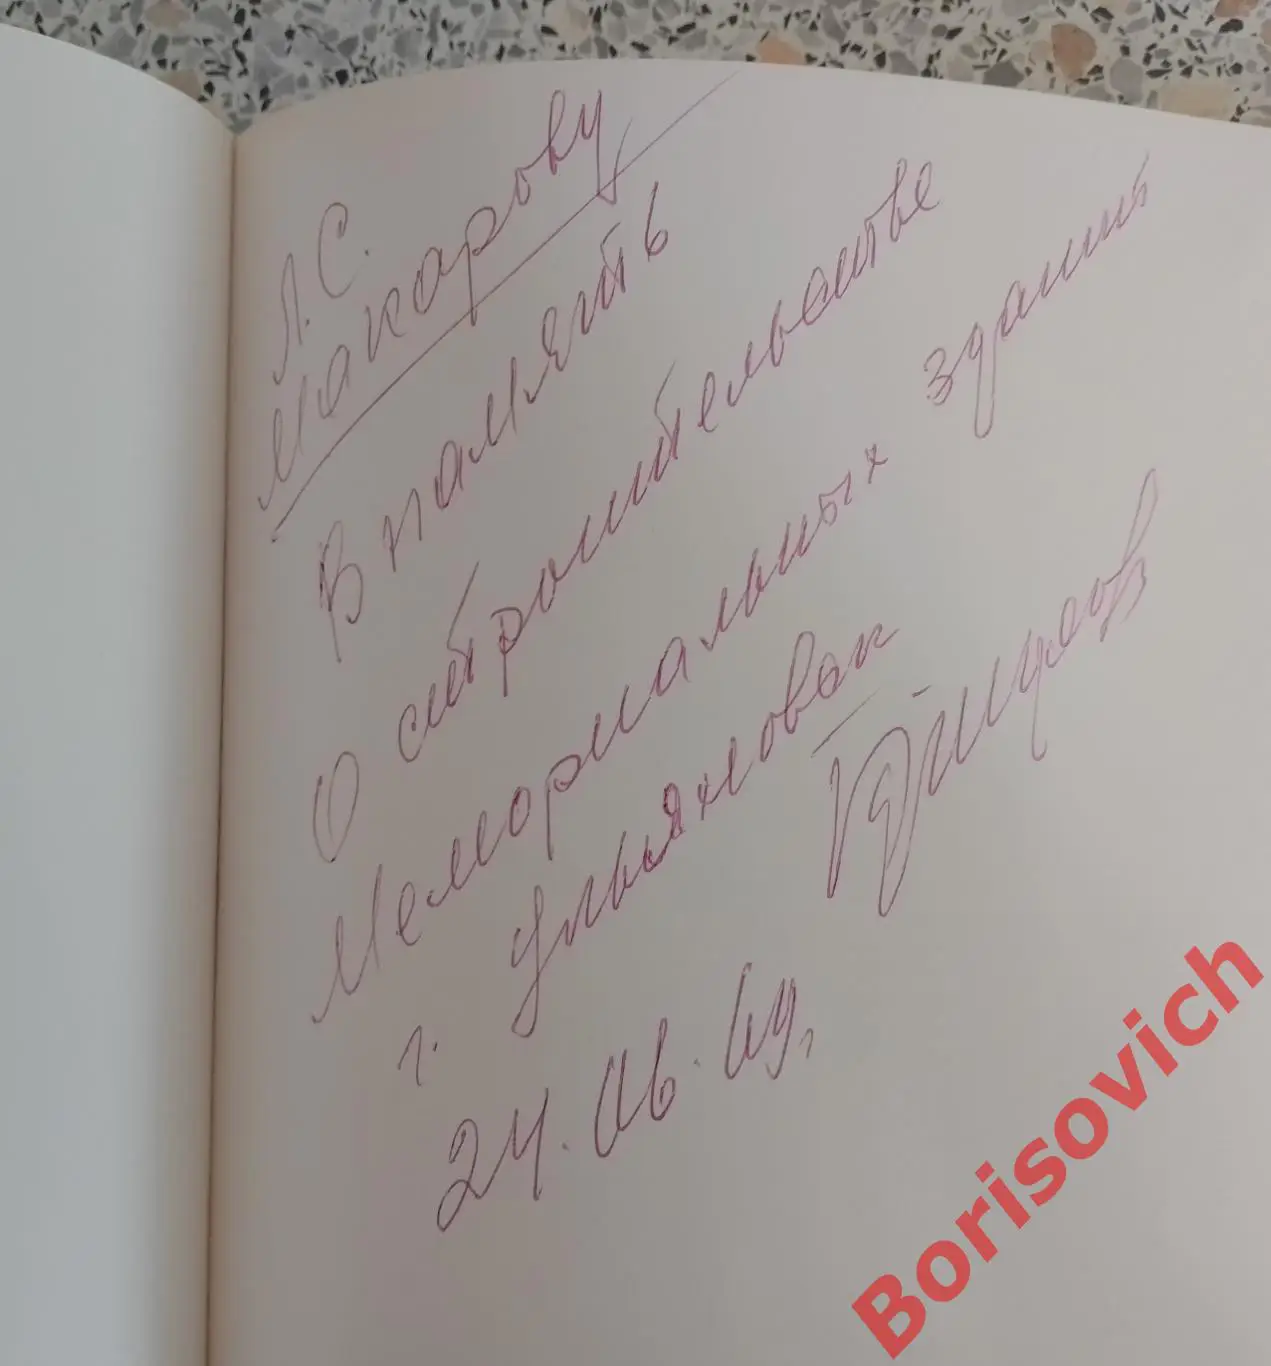 Л.С.
Макарову
В память
О строительстве
Мемориальных зданий
г. Ульяновск
24.06.69,
Borisovich